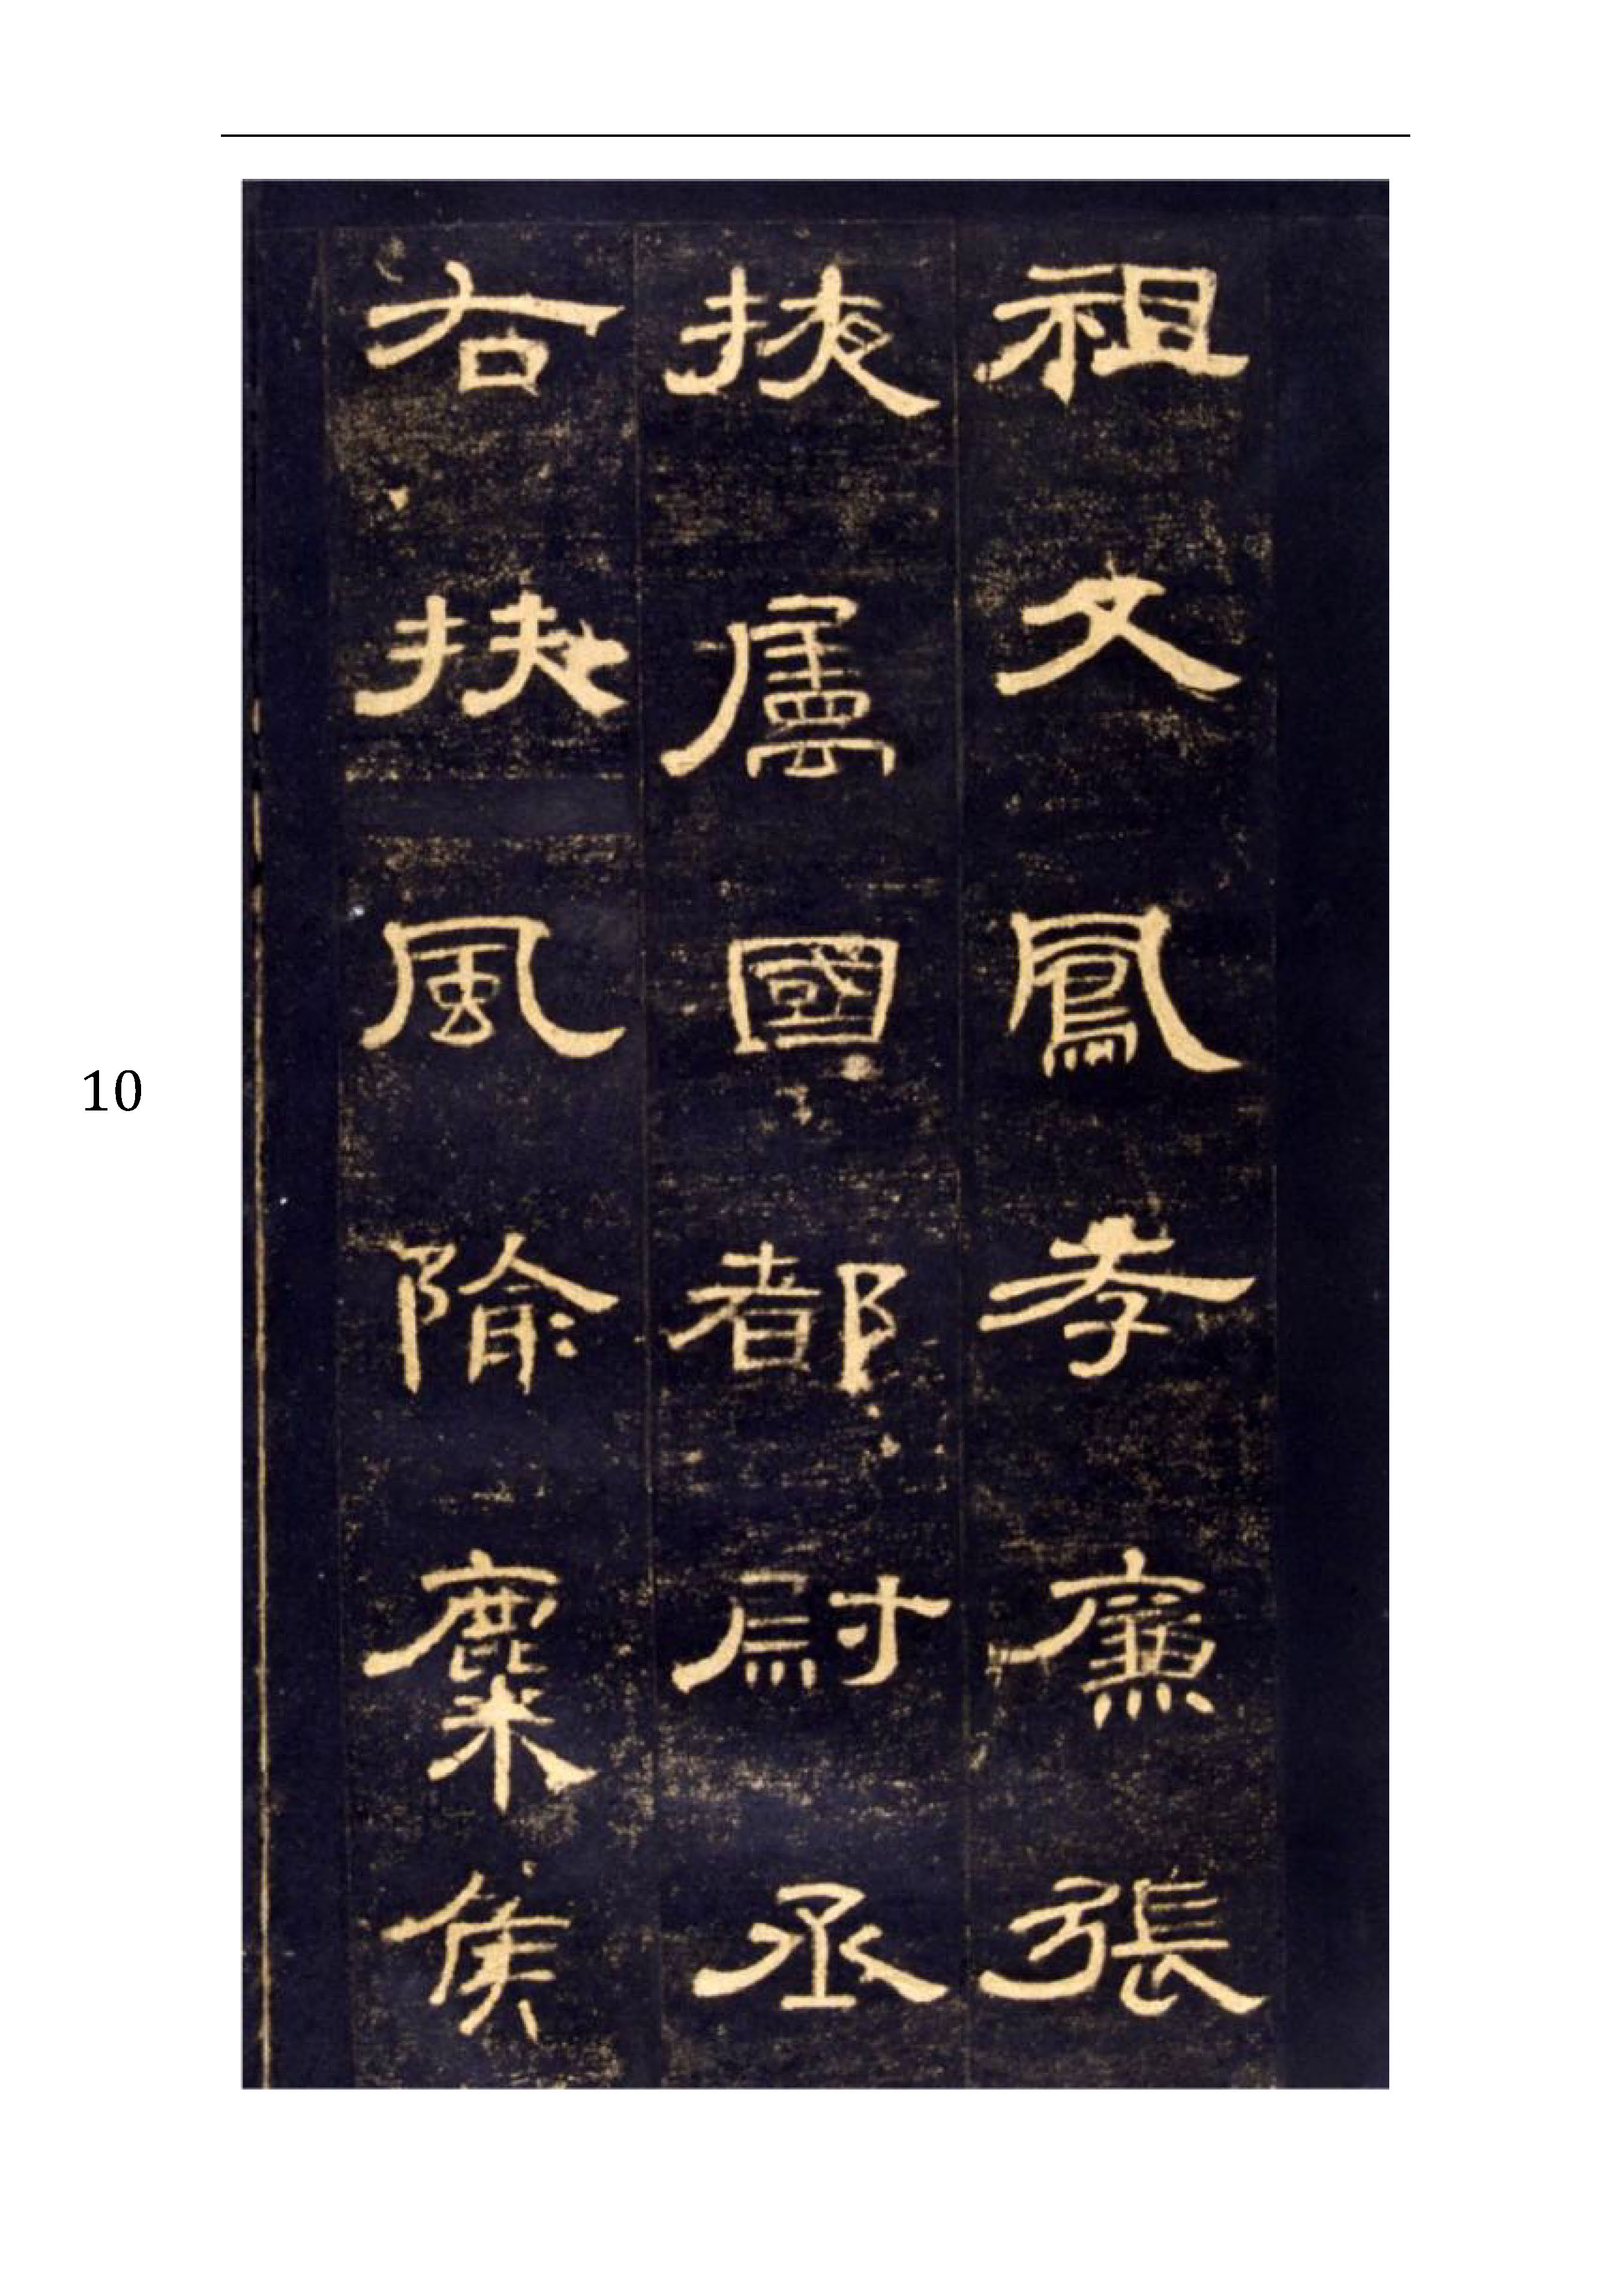 祖父鳳孝廉張
掖屬國都尉丞
右扶風隃麋侯
10